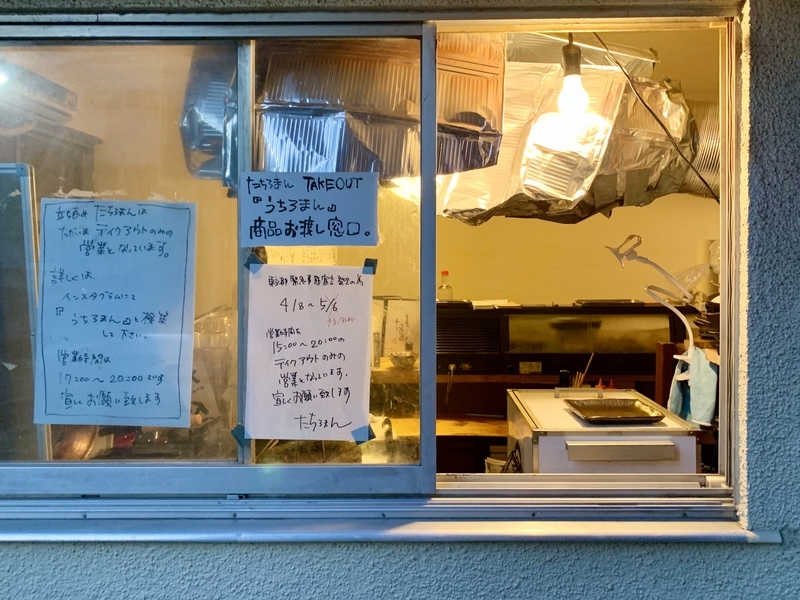 立ち呑み たちろまんは
ただ今 テイクアウトのみの
営業となっています。
詳しくは
インスタグラムにて
『うちろまん』と検索
して下さい。
営業時間は
17:00〜20:00です
宜しくお願い致します
たちろまん TAKEOUT
『うちろまん』
商品お渡し窓口。
東京都 緊急事態宣言 発令の為
4/8〜5/6
営業時間を
15:00〜20:00の
テイクアウトのみの
営業となっています。
宜しくお願い致します
たちろまん